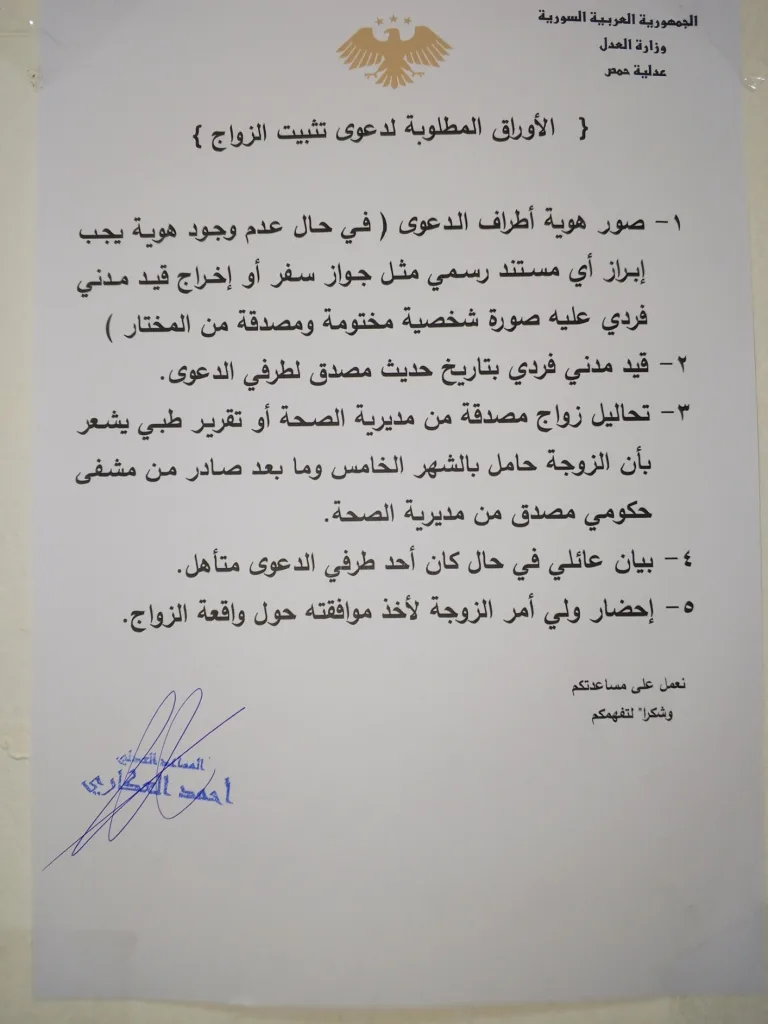 الجمهورية العربية السورية
وزارة العدل
عدلية حمص
{ الأوراق المطلوبة لدعوى تثبيت الزواج }
١- صور هوية أطراف الدعوى ( في حال عدم وجود هوية يجب
إبراز أي مستند رسمي مثل جواز سفر أو إخراج قيد مدني
فردي عليه صورة شخصية مختومة ومصدقة من المختار )
٢- قيد مدني فردي بتاريخ حديث مصدق لطرفي الدعوى.
٣- تحاليل زواج مصدقة من مديرية الصحة أو تقرير طبي يشعر
بأن الزوجة حامل بالشهر الخامس وما بعد صادر من مشفى
حكومي مصدق من مديرية الصحة.
٤- بيان عائلي في حال كان أحد طرفي الدعوى متأهل.
٥- إحضار ولي أمر الزوجة لأخذ موافقته حول واقعة الزواج.
نعمل على مساعدتكم
وشكرا" لتفهمكم
المساعد العدلي
احمد العكاري